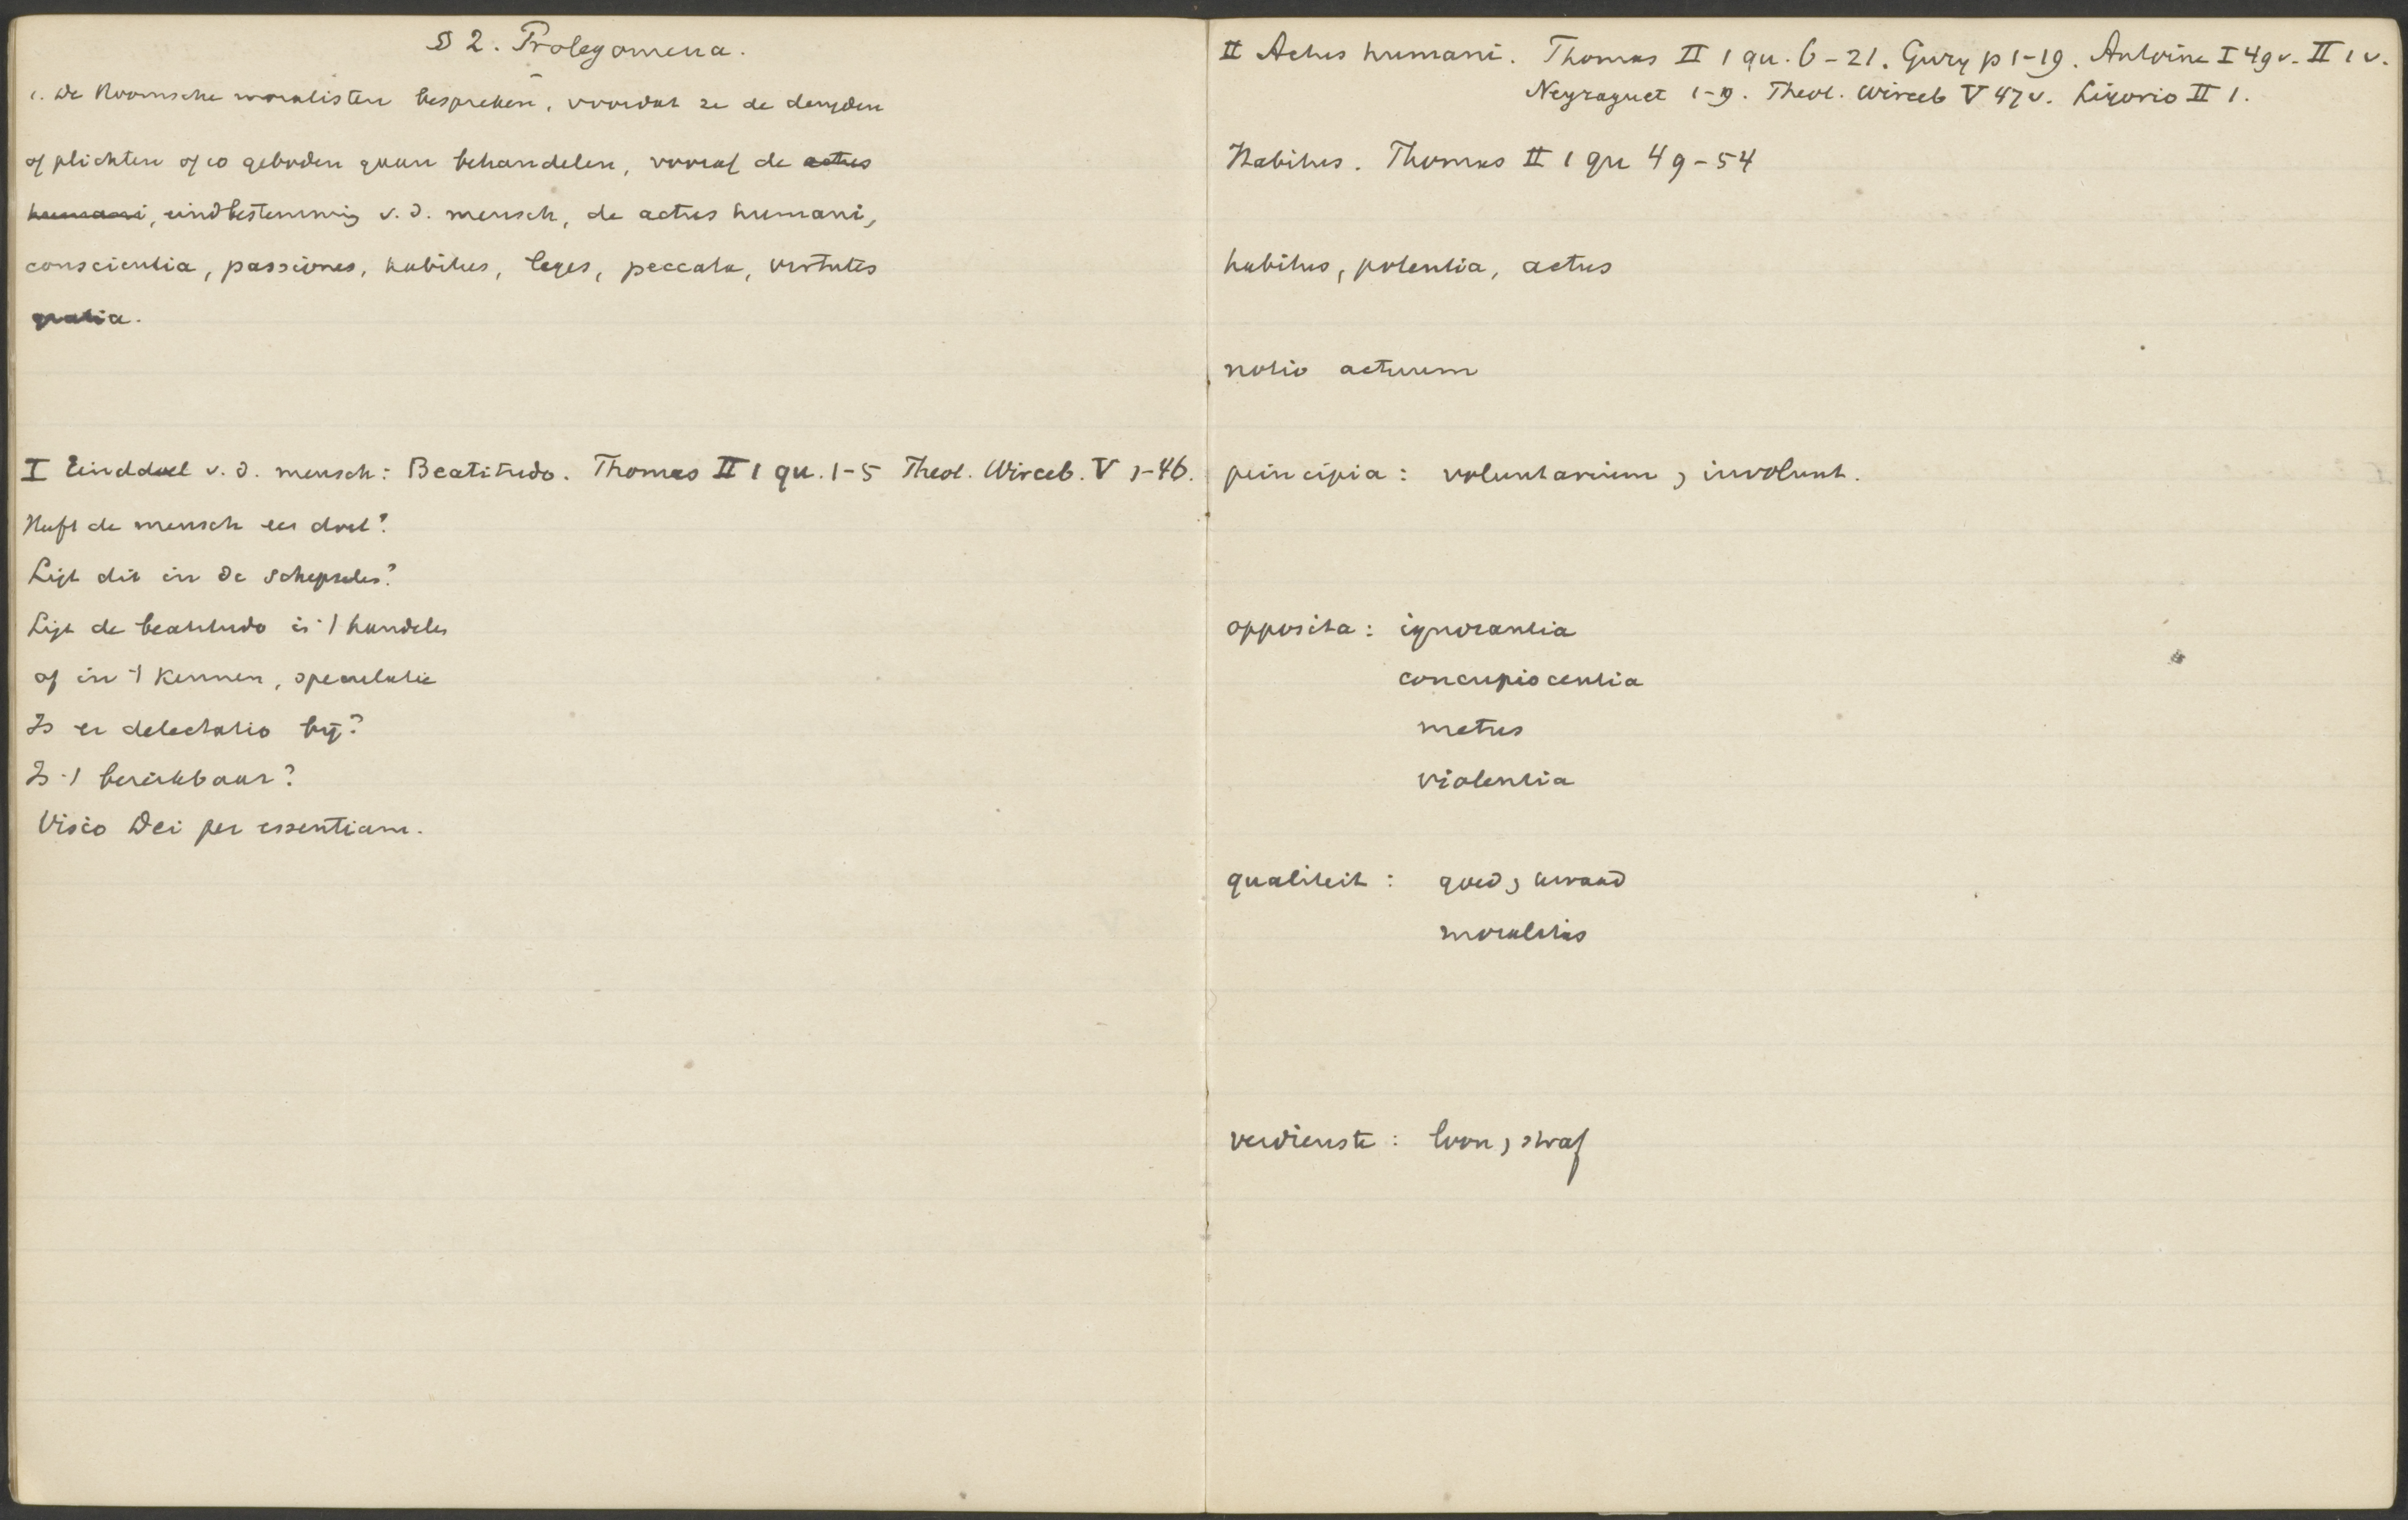 § 2. Prolegomena.
1. De Roomsche moralisten bespreken, voordat ze de deugden
of plichten of 10 geboden gaan behandelen, vooraf de actus
humani, eindbestemming v. d. mensch, de actus humani,
conscientia, passiones, habitus, leges, peccata, virtutes
gratia.
I Einddoel v. d. mensch: Beatitudo. Thomas II 1 qu. 1-5 Theol. Wirceb. V 1-46.
Heeft de mensch een doel?
Ligt dit in de schepselen?
Ligt de beatitudo in 't handelen
of in 't kennen, speculatie
Is er delectatio bij?
Is 't bereikbaar?
Visio Dei per essentiam.
II Actus humani. Thomas II 1 qu. 6-21. Gury p 1-19. Antoine I 49 v. II 1 v.
Neyraguet 1-19. Theol. Wirceb V 47 v. Ligorio II 1.
Habitus. Thomas II 1 qu 49-54
habitus, potentia, actus
notio actuum
principia: voluntarium, involunt.
opposita: ignorantia
concupiscentia
metus
violentia
qualiteit: goed, kwaad
moralitas
verdienste: loon, straf